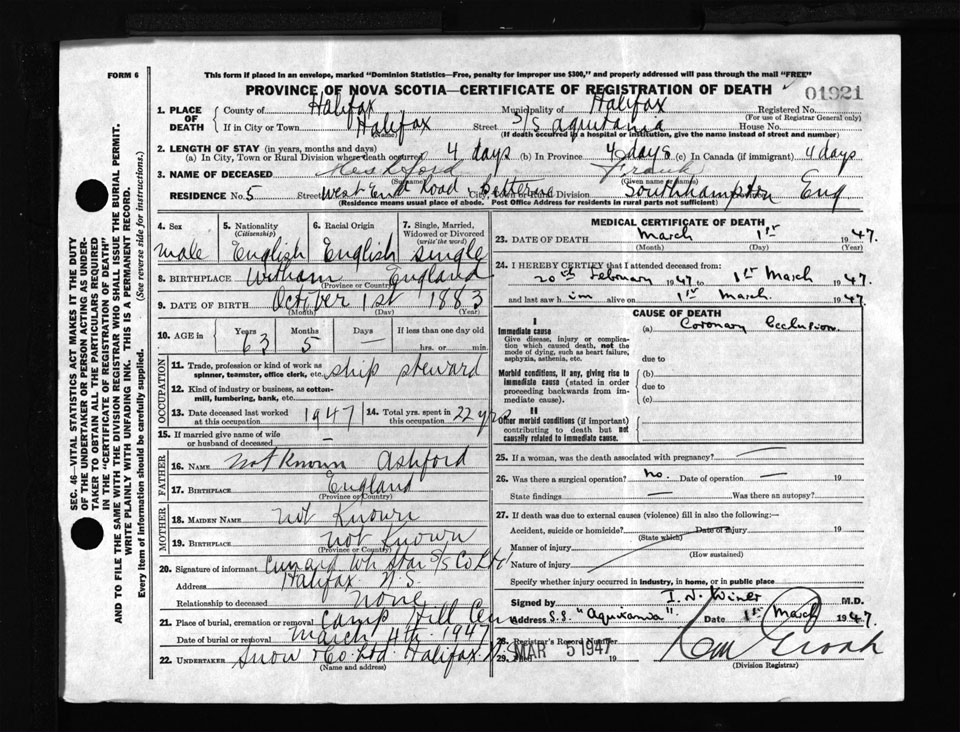 FORM 6
This form if placed in an envelope, marked "Dominion Statistics—Free, penalty for improper use $300," and properly addressed will pass through the mail "FREE"
PROVINCE OF NOVA SCOTIA—CERTIFICATE OF REGISTRATION OF DEATH
01921
1. PLACE OF DEATH County of Halifax Municipality of Halifax Registered No.
(For use of Registrar General only)
If in City or Town Halifax Street S/S Aquitania House No.
(If death occurred in a hospital or institution, give the name instead of street and number)
2. LENGTH OF STAY (in years, months and days)
(a) In City, Town or Rural Division where death occurred 4 days (b) In Province 4 days (c) In Canada (if immigrant) 4 days
3. NAME OF DECEASED Frank
(Surname) (Given name or names)
RESIDENCE No. 5 Street West End Road Bitterne City, Town or Rural Division Southampton Eng
(Residence means usual place of abode. Post Office Address for residents in rural parts not sufficient)
4. Sex male
5. Nationality (Citizenship) English
6. Racial Origin English
7. Single, Married, Widowed or Divorced (write the word) single
8. BIRTHPLACE Witham England
(Province or Country)
9. DATE OF BIRTH October 1st 1883
(Month) (Day) (Year)
10. AGE in Years 63 Months 5 Days — If less than one day old hrs. or min.
OCCUPATION
11. Trade, profession or kind of work as spinner, teamster, office clerk, etc. ship steward
12. Kind of industry or business, as cotton-mill, lumbering, bank, etc.
13. Date deceased last worked at this occupation 1947 14. Total yrs. spent in this occupation 22 yrs
15. If married give name of wife or husband of deceased —
FATHER
16. NAME not known Ashford
17. BIRTHPLACE England
(Province or Country)
MOTHER
18. MAIDEN NAME not Known
19. BIRTHPLACE not Known
(Province or Country)
20. Signature of informant Cunard Wh Star S/S Co Ltd
Address Halifax N.S.
Relationship to deceased none
21. Place of burial, cremation or removal Camp Hill Cem
Date of burial or removal March 4th 1947
22. UNDERTAKER Snow & Co. Ltd. Halifax N.S.
(Name and address)
MEDICAL CERTIFICATE OF DEATH
23. DATE OF DEATH March 1st 1947.
(Month) (Day)
24. I HEREBY CERTIFY that I attended deceased from:
20th February 1947 to 1st March 1947
and last saw him alive on 1st March. 1947.
CAUSE OF DEATH
I
Immediate cause
Give disease, injury or complication which caused death, not the mode of dying, such as heart failure, asphyxia, asthenia, etc.
(a) Coronary Occlusion.
due to
Morbid conditions, if any, giving rise to immediate cause (stated in order proceeding backwards from immediate cause).
(b)
due to
(c)
II
Other morbid conditions (if important) contributing to death but not causally related to immediate cause.
25. If a woman, was the death associated with pregnancy? —
26. Was there a surgical operation? no. Date of operation — 19
State findings — Was there an autopsy?
27. If death was due to external causes (violence) fill in also the following:—
Accident, suicide or homicide? Date of injury 19
(State which)
Manner of injury
(How sustained)
Nature of injury
Specify whether injury occurred in industry, in home, or in public place
Signed by I. N. Winer M.D.
Address S.S. "Aquitania". Date 1st March 1947.
28. Registrar's Record Number
29. MAR 5 1947 19
(Division Registrar)
SEC. 46—VITAL STATISTICS ACT MAKES IT THE DUTY OF THE UNDERTAKER OR PERSON ACTING AS UNDERTAKER TO OBTAIN ALL THE PARTICULARS REQUIRED IN THE "CERTIFICATE OF REGISTRATION OF DEATH" AND TO FILE THE SAME WITH THE DIVISION REGISTRAR WHO SHALL ISSUE THE BURIAL PERMIT.
WRITE PLAINLY WITH UNFADING INK. THIS IS A PERMANENT RECORD.
Every item of information should be carefully supplied. (See reverse side for instructions.)